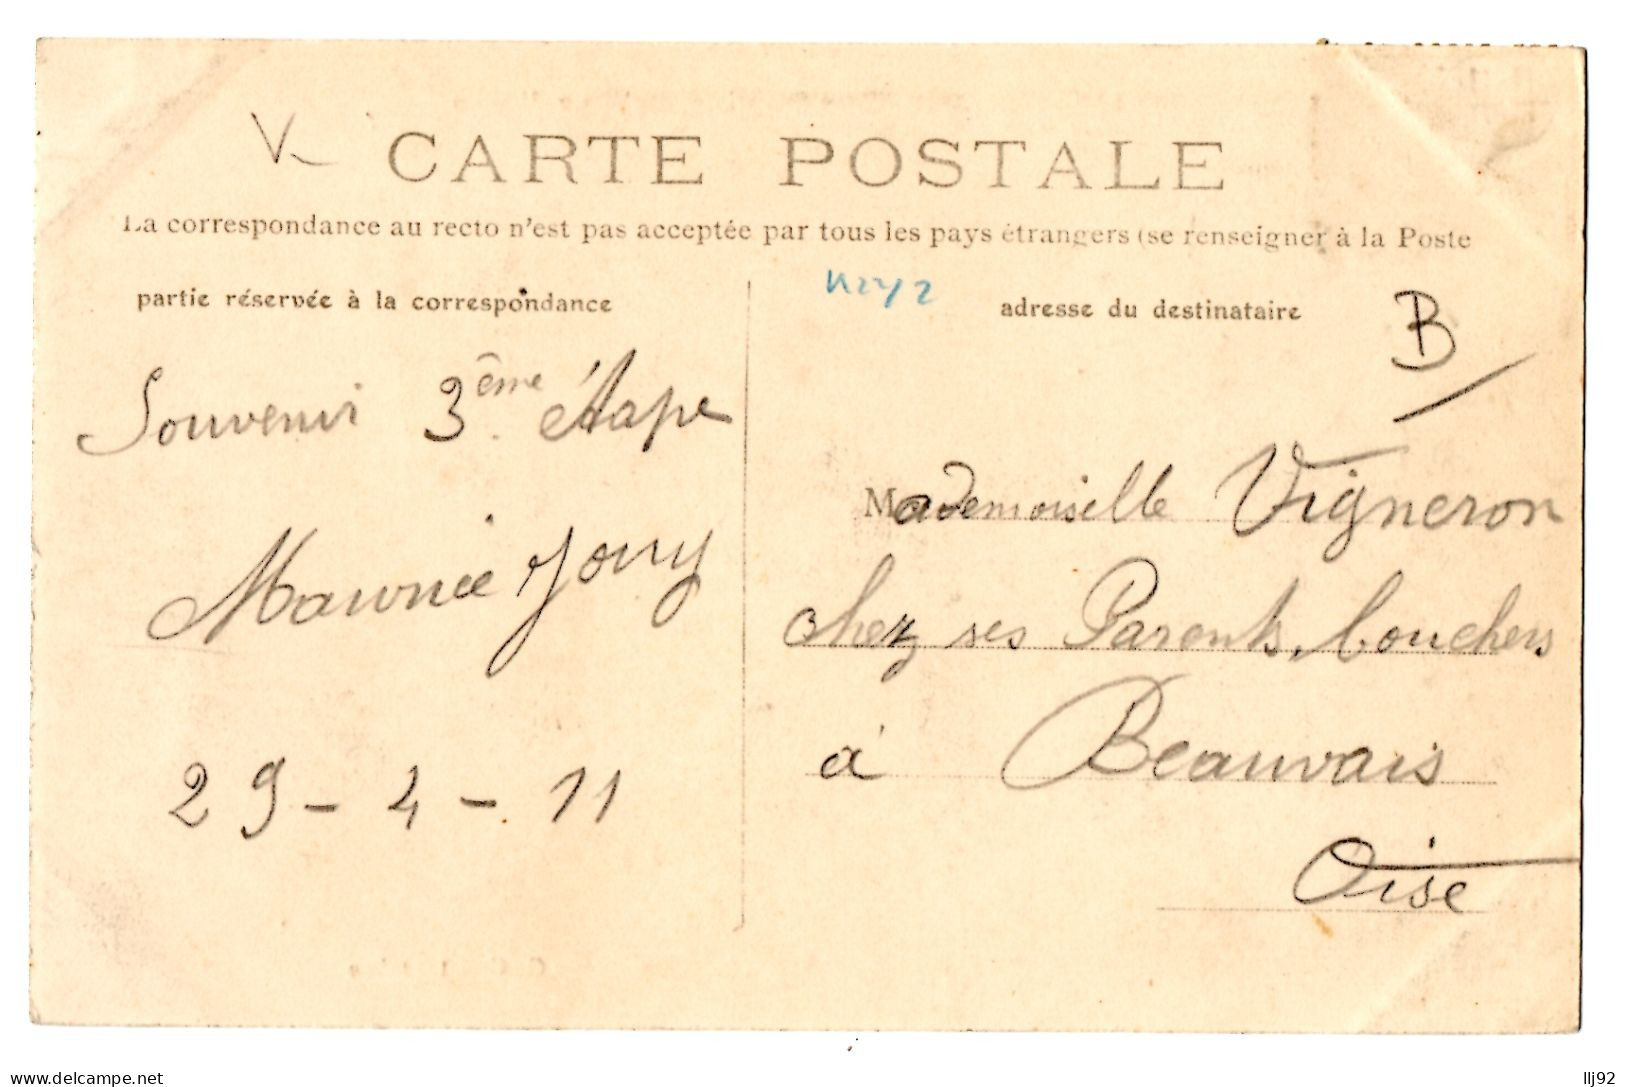 V
CARTE POSTALE
La correspondance au recto n'est pas acceptée par tous les pays étrangers (se renseigner à la Poste
partie réservée à la correspondance
Souvenir 3ème étape
Maurice Joury
29-4-11
adresse du destinataire
B
Mademoiselle Vigneron
chez ses Parents, bouchers
à Beauvais
Oise
www.delcampe.net
llj92